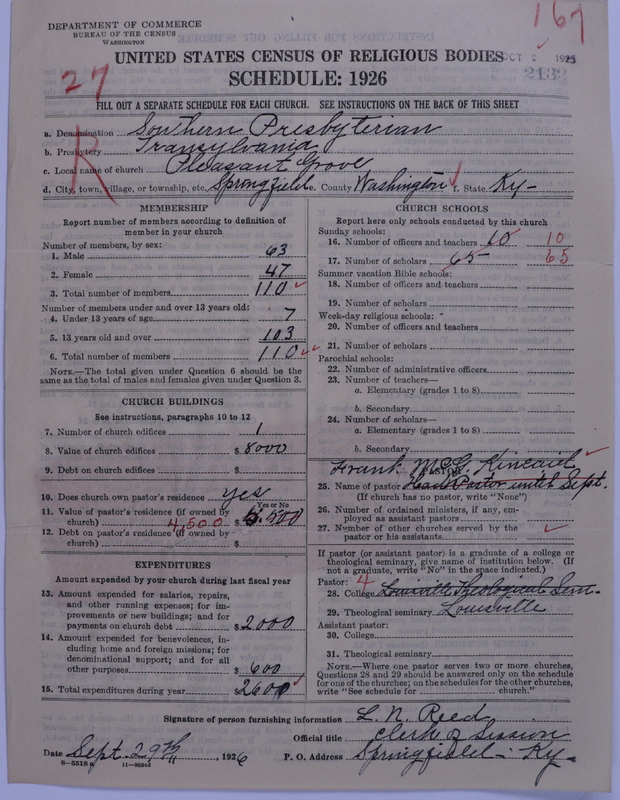 DEPARTMENT OF COMMERCE
BUREAU OF THE CENSUS
WASHINGTON
167
27
R
UNITED STATES CENSUS OF RELIGIOUS BODIES
OCT 1925
2132
SCHEDULE: 1926
FILL OUT A SEPARATE SCHEDULE FOR EACH CHURCH. SEE INSTRUCTIONS ON THE BACK OF THIS SHEET
a. Denomination Southern Presbyterian
b. Presbytery Transylvania
c. Local name of church Pleasant Grove
d. City, town, village, or township, etc. Springfield e. County Washington f. State Ky-
MEMBERSHIP
Report number of members according to definition of
member in your church
Number of members, by sex:
1. Male 63
2. Female 47
3. Total number of members 110
Number of members under and over 13 years old:
4. Under 13 years of age 7
5. 13 years old and over 103
6. Total number of members 110
NOTE.—The total given under Question 6 should be the
same as the total of males and females given under Question 3.
CHURCH BUILDINGS
See instructions, paragraphs 10 to 12
7. Number of church edifices 1
8. Value of church edifices $ 8000
9. Debt on church edifices $
10. Does church own pastor's residence yes
Yes or No
11. Value of pastor's residence (if owned by
church) 4,500 $ 5.500
12. Debt on pastor's residence (if owned by
church) $
EXPENDITURES
Amount expended by your church during last fiscal year
13. Amount expended for salaries, repairs,
and other running expenses; for im-
provements or new buildings; and for
payments on church debt $ 2000
14. Amount expended for benevolences, in-
cluding home and foreign missions; for
denominational support; and for all
other purposes $ 600
15. Total expenditures during year $ 2600
CHURCH SCHOOLS
Report here only schools conducted by this church
Sunday schools:
16. Number of officers and teachers 10 10
17. Number of scholars 65- 65
Summer vacation Bible schools:
18. Number of officers and teachers
19. Number of scholars
Week-day religious schools:
20. Number of officers and teachers
21. Number of scholars
Parochial schools:
22. Number of administrative officers
23. Number of teachers—
a. Elementary (grades 1 to 8)
b. Secondary
24. Number of scholars—
a. Elementary (grades 1 to 8)
b. Secondary
Frank McG. Kincaid
PASTOR
25. Name of pastor Had Pastor until Sept.
(If church has no pastor, write "None")
26. Number of ordained ministers, if any, em-
ployed as assistant pastors
27. Number of other churches served by the
pastor or his assistants
If pastor (or assistant pastor) is a graduate of a college or
theological seminary, give name of institution below. (If
not a graduate, write "No" in the space indicated.)
Pastor: 4
28. College Louisville Theological Sem.
29. Theological seminary Louisville
Assistant pastor:
30. College
31. Theological seminary
NOTE.—Where one pastor serves two or more churches,
Questions 28 and 29 should be answered only on the schedule
for one of the churches; on the schedules for the other churches,
write "See schedule for church."
Signature of person furnishing information L. N. Reed
Official title Clerk of Session
Date Sept. 29th, 1926 P. O. Address Springfield - Ky-
8—5518 a 11—9054